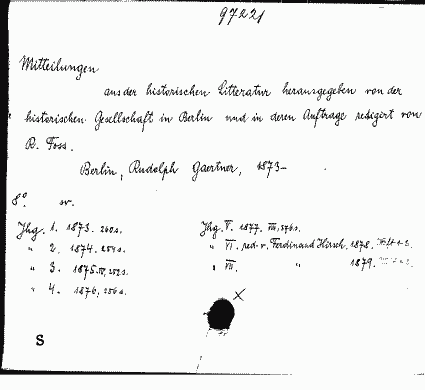 97221
Mitteilungen
aus der historischen Litteratur herausgegeben von der
historischen Gesellschaft in Berlin und in deren Auftrage redigirt von
R. Foss.
Berlin, Rudolph Gaertner, 1873-
8°. sv.
Jhg. 1. 1873. 260 s. Jhg. V. 1877. VIII, 376 s.
" 2. 1874. 254 s. " VI. red. v. Ferdinand Hirsch. 1878.
" 3. 1875. IV, 252 s. " VII. " 1879.
" 4. 1876, 256 s.
S